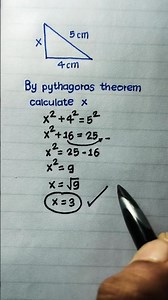 x
5cm
4cm
By pythagoras theorem
calculate x
x² + 4² = 5²
x² + 16 = 25
x² = 25 - 16
x² = 9
x = √9
x = 3